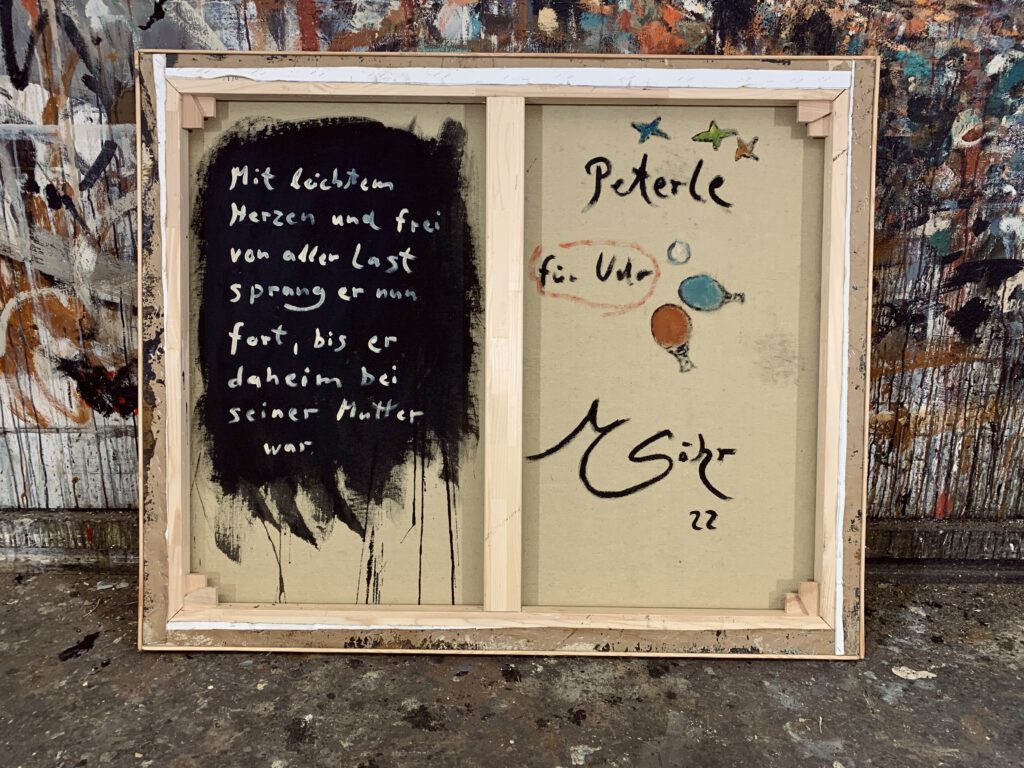 Mit leichtem
Herzen und frei
von aller Last
sprang er nun
fort, bis er
daheim bei
seiner Mutter
war.
Peterle
für
M Söhr
22